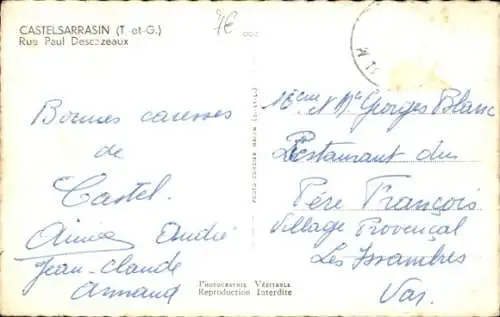 CASTELSARRASIN (T.-et-G.)
Rue Paul Descazeaux
7€
Bonnes caresses
de
Castel.
Aimée André
Jean-Claude
Armand
Mr Mme Georges Blanc
Restaurant du
Père François
Village Provençal
Les Issambres
Var.
PHOTOGRAPHIE VÉRITABLE
Reproduction Interdite